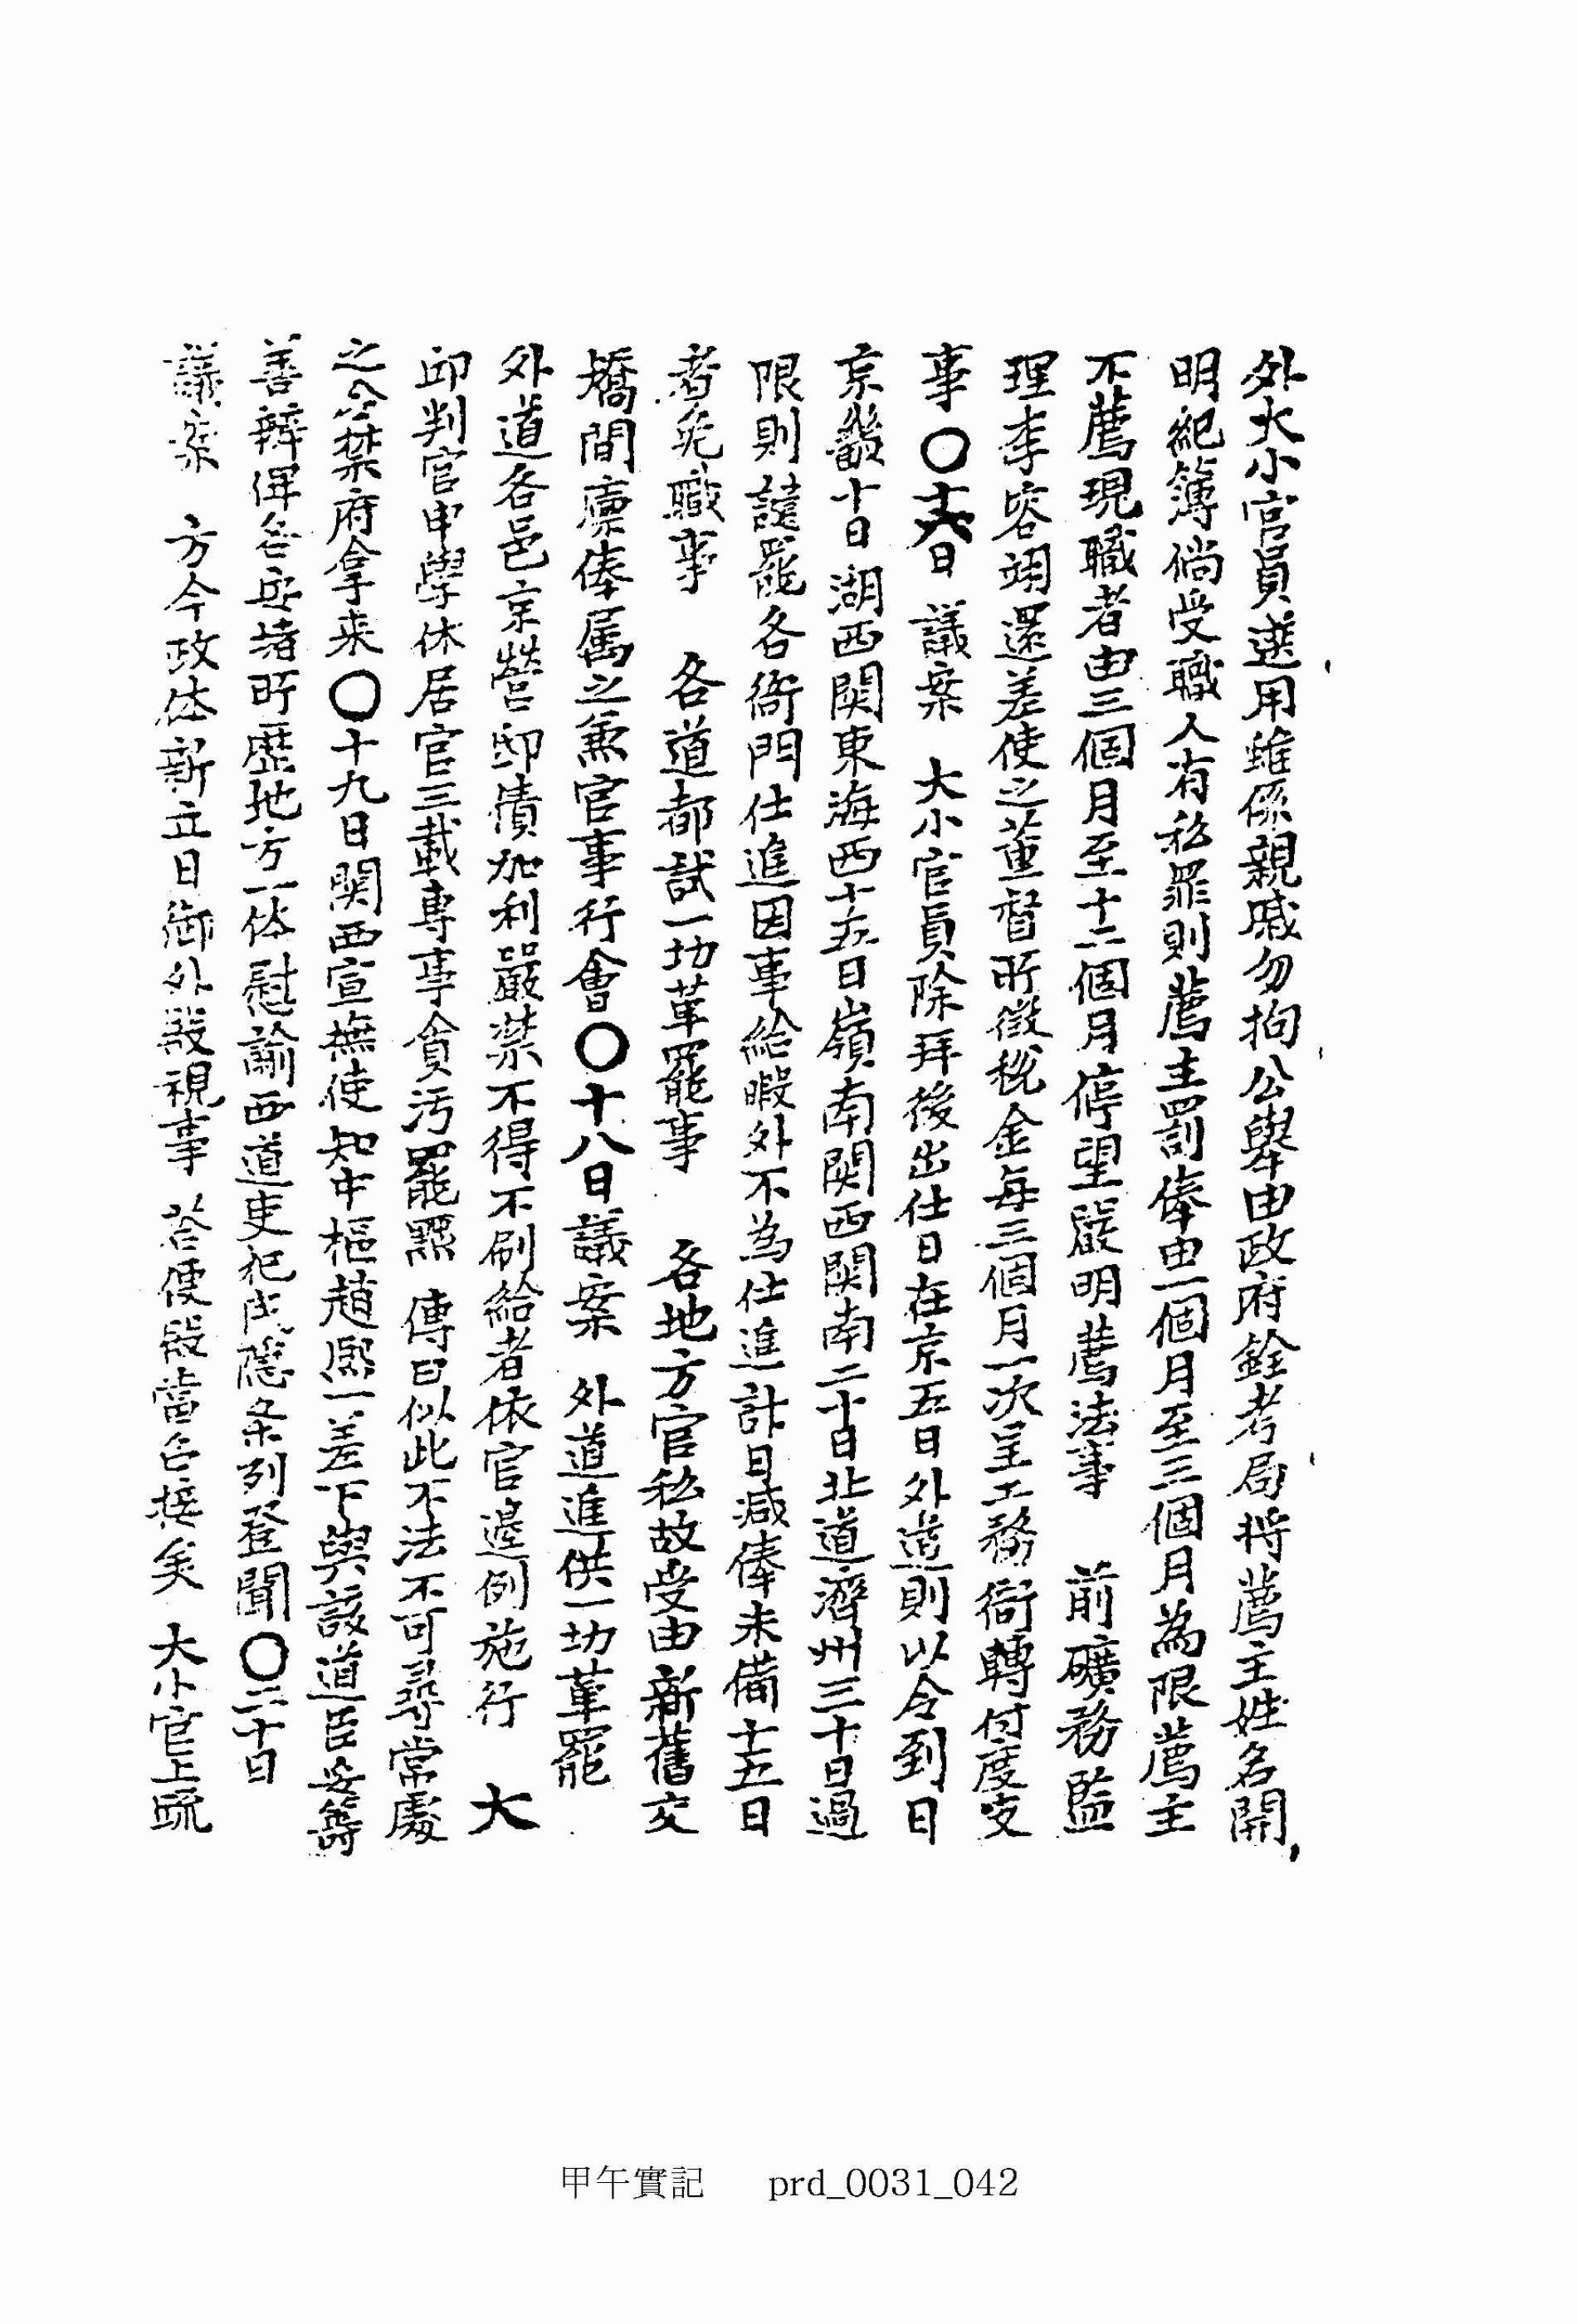 外大小官員選用雖係親戚勿拘公擧由政府銓考局將薦主姓名開
明紀簿倘受職人有私罪則薦主罰俸由一個月至三個月為限薦主
不薦現職者由三個月至十二個月停望嚴明薦法事 前礦務監
理李容翊還差使之董督所徵稅金每三個月一次呈工務衙轉付度支
事〇十六日 議案 大小官員除拜後出仕日在京五日外道則以令到日
京畿十日湖西関東海西十五日嶺南関西関南二十日北道濟州三十日過
限則譴罷各衙門仕進因事給暇外不為仕進計日減俸未備十五日
者免職事 各道都試一切革罷事 各地方官私故受由新舊交
矯間廩俸属之兼官事行會〇十八日議案 外道進供一切革罷
外道各邑京營邸債加利嚴禁不得不刷給者依官邊例施行 大
邱判官申學休居官三載專事貪汚罷黜 傳曰似此不法不可尋常處
之令禁府拿来〇十九日関西宣撫使知中樞趙熙一差下與該道臣妥籌
善辨俾各安堵所歷地方一体慰諭西道吏犯民隱条列登聞〇二十日
議案 方今政体新立日御外殿視事 荅便殿當各接矣 大小官上疏
甲午實記 prd_0031_042